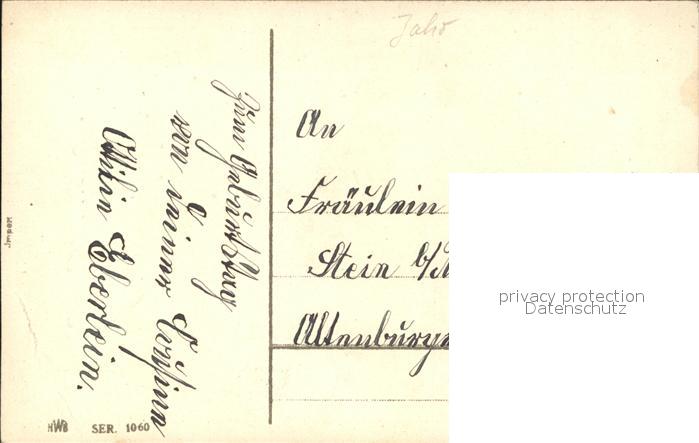 Jahr
Zum Geburtstag
von deiner Cousina
Ottilie Eberlein.
An
Fräulein
Stein b/N
Altenburge
privacy protection
Datenschutz
Import
HWB SER. 1060